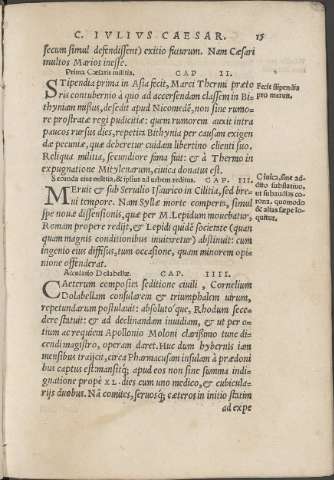 C. IVLIVS CAESAR. 15
secum simul defendissent) exitio futurum. Nam Cæsari
multos Marios inesse.
Prima Cæsaris militia. CAP II.
STipendia prima in Asia fecit, Marci Thermi præto
ris contubernio à quo ad accersendam classem in Bi-
thyniam missus, desedit apud Nicomedē, non sine rumo-
re prostratæ regi pudicitiæ: quem rumorem auxit intra
paucos rursus dies, repetita Bithynia per causam exigen
dæ pecuniæ, quæ deberetur cuidam libertino clienti suo.
Reliqua militia, secundiore fama fuit: & à Thermo in
expugnatione Mitylenarum, ciuica donatus est.
Fecit stipendia
pro merum.
Secunda eius militia, & ipsius ad urbem reditus. CAP. III.
MEruit & sub Seruilio Isaurico in Cilitia, sed bre-
ui tempore. Nam Syllæ morte comperta, simul
spe nouæ dissensionis, quæ per M. Lepidum mouebatur,
Romam propere redijt, & Lepidi quidē societate (quan
quam magnis conditionibus inuitaretur) abstinuit: cum
ingenio eius diffisus, tum occasione, quam minorem opi-
nione offenderat.
Ciuica, sine ad-
dito substātiuo,
ut subauditas co-
rona. quomodo
& alias sæpe lo-
quitur.
Accusatio Dolabellæ. CAP. IIII.
CAeterum composita seditione ciuili, Cornelium
Dolabellam consularem & triumphalem uirum,
repetundarum postulauit: absolutoq́ue, Rhodum sece-
dere statuit: & ad declinandam inuidiam, & ut per o-
tium ac requiem Apollonio Moloni clarissimo tunc di-
cendi magistro, operam daret. Huc dum hybernis iam
mensibus traijcit, circa Pharmacusam insulam à prædoni
bus captus est: mansitq́; apud eos non sine summa indi-
gnatione prope XL. dies cum uno medico, & cubicula-
rijs duobus. Nā comites, seruosq́; cæteros in initio statim
ad expe